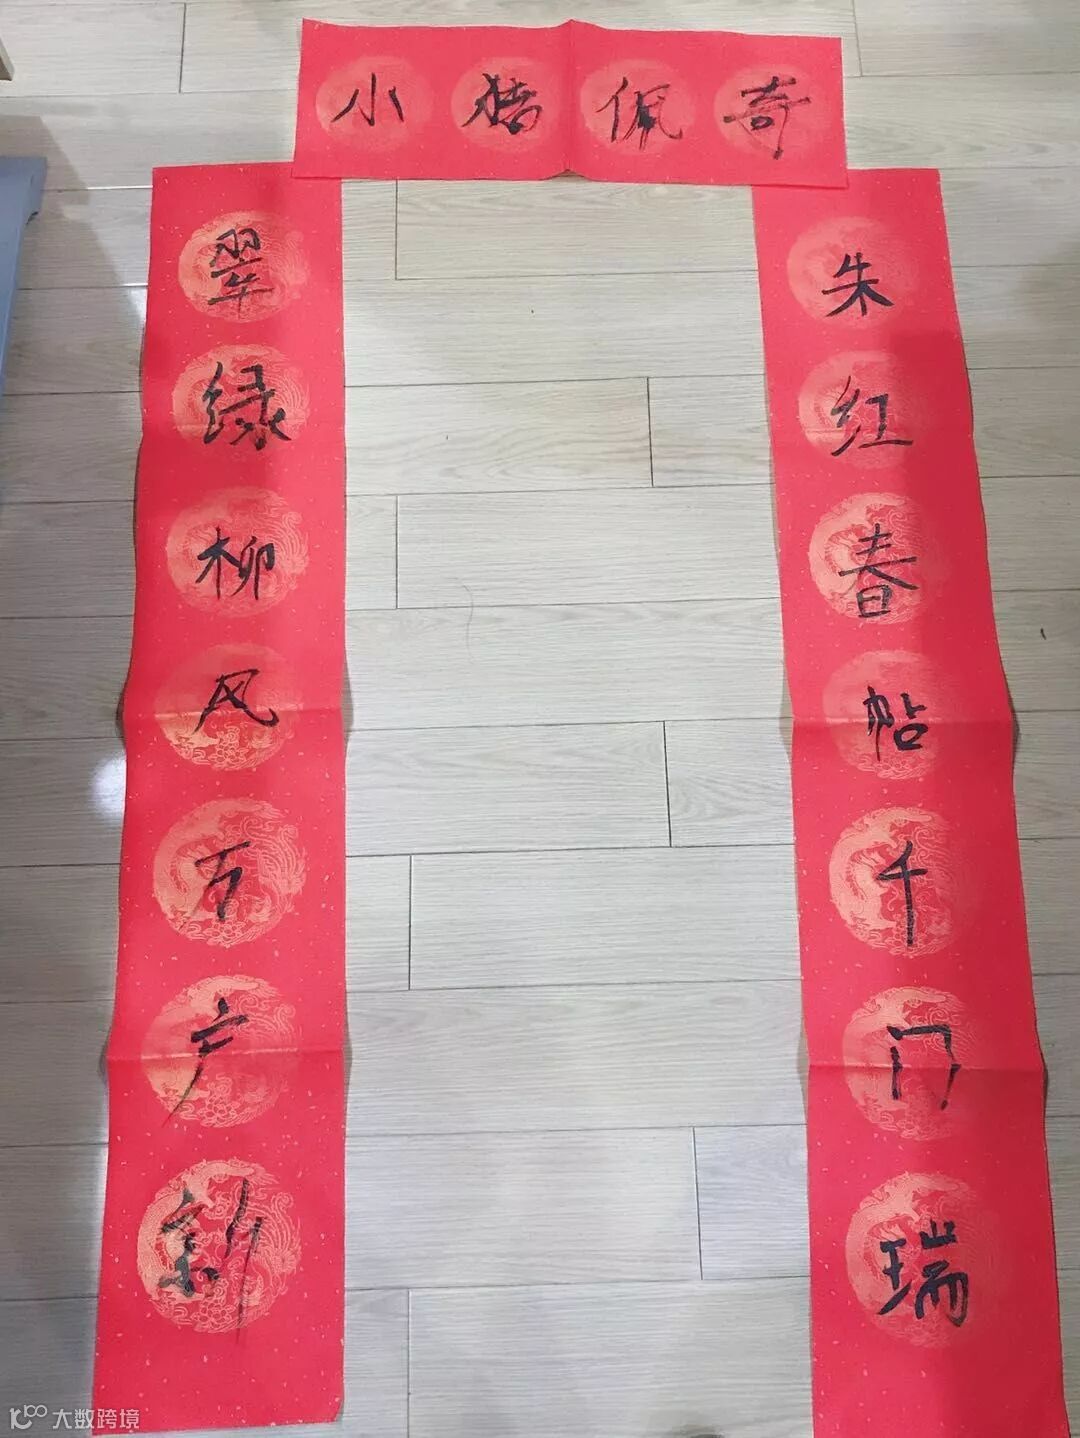 小猪佩奇
翠绿柳风万户新
朱红春帖千门瑞
大数跨境